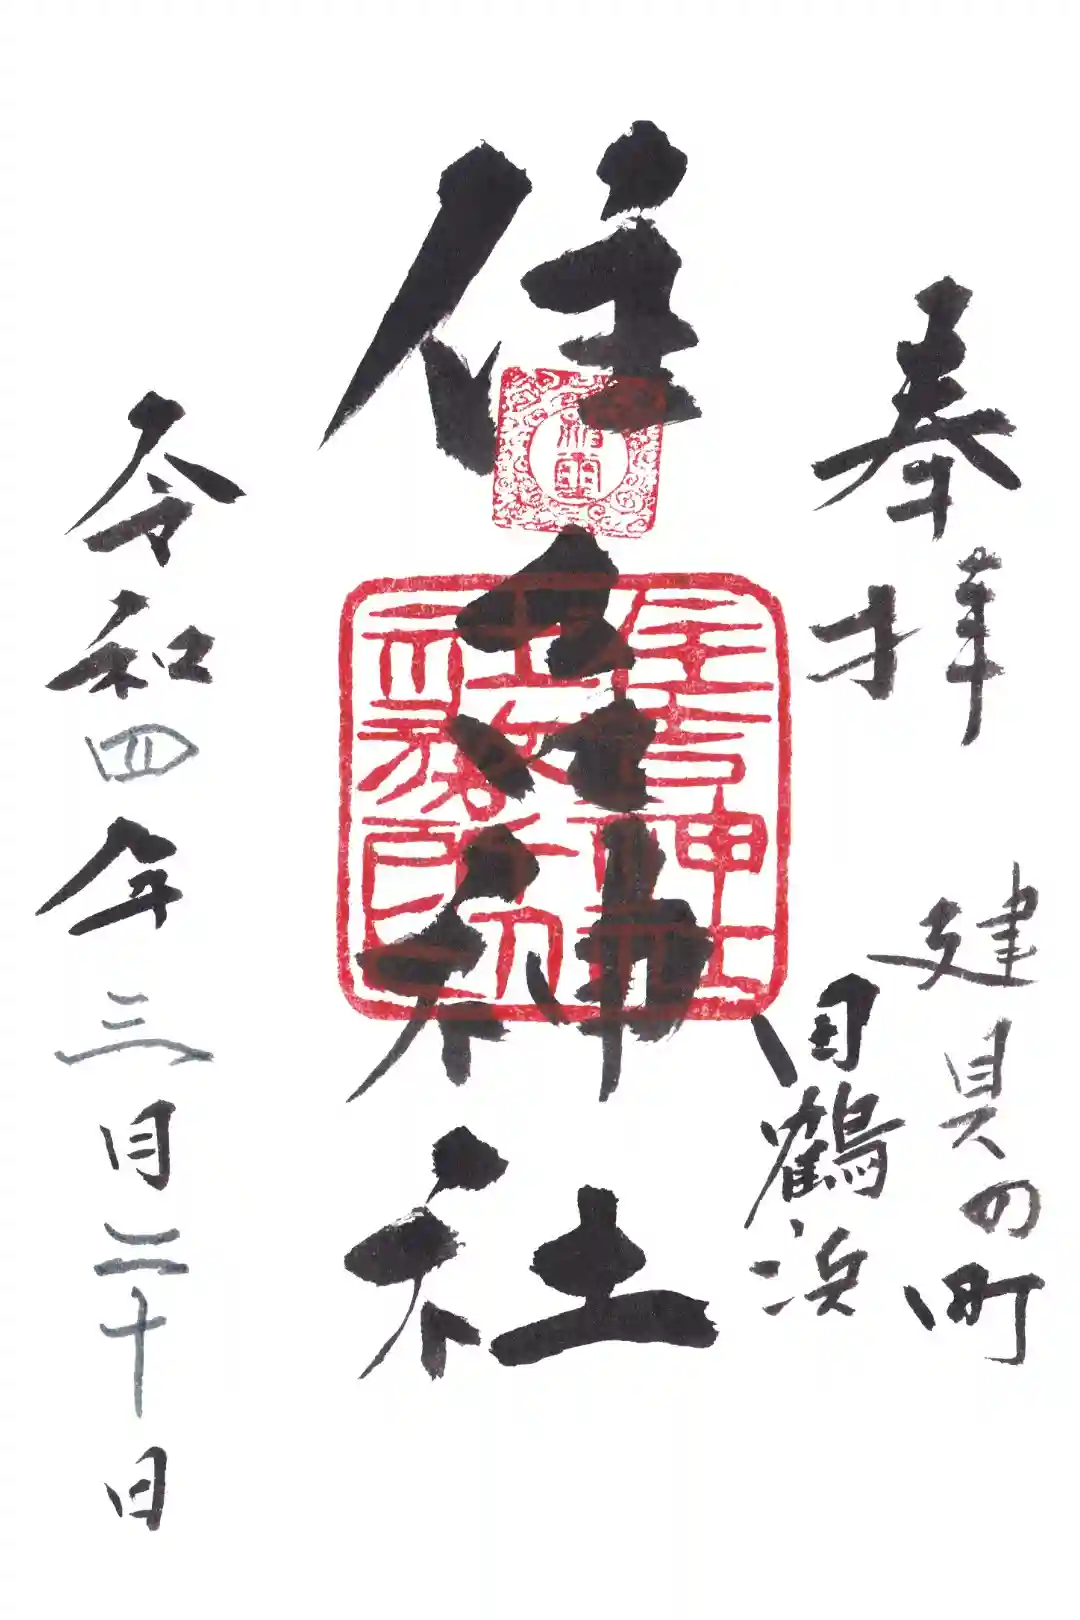 奉拝
建具の町
田鶴浜
住吉神社
住吉神社
令和四年三月二十日